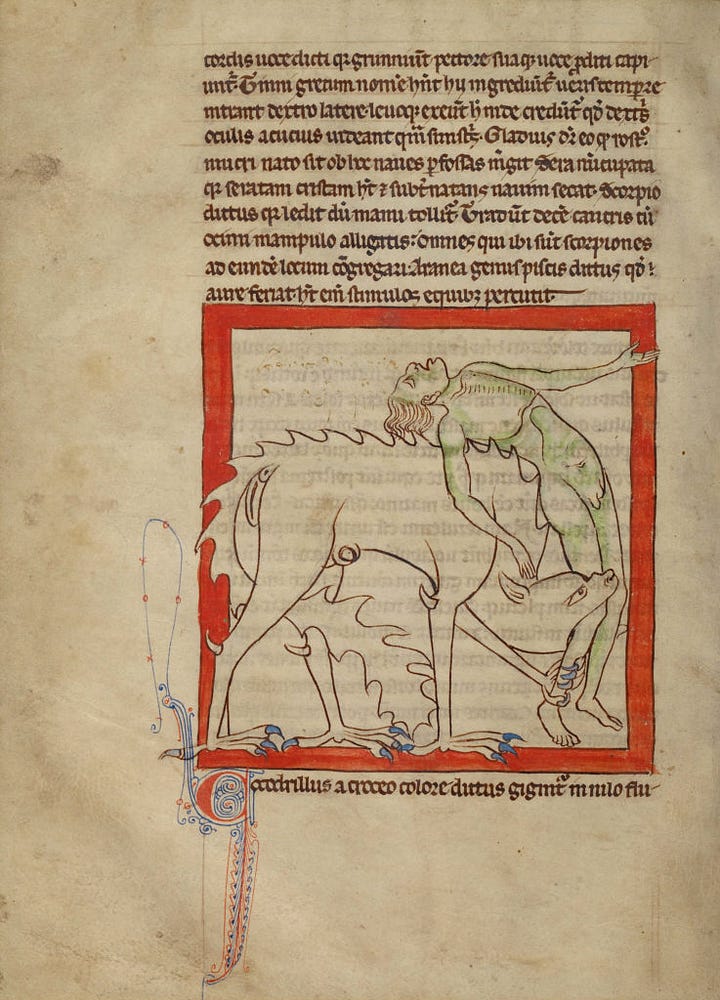 cordis uoce dicti qr grunniūt pectore sua qꝫ uoce ꝓditi capi-
unt᷑. Tinni grecum nom̄e hn̄t hii ingrediūt᷑ ueris tempore
intrant dextro latere leuoqꝫ exeūt h̄ inde credūt᷑ qd̄ dext̄s
oculis acucius uideant qm̄ sinist̄s. Gladius dr̄ eo ꝙ rost᷑
nato sit ob hoc naues ꝑfossas m̄git Serra nūcupata
qr serratam cristam ht̄ ⁊ subt᷑natans nauim secat. Scorpio
dictus qr ledit dū manu tollit᷑. Tradūt decē cancris cū
ocimi manipulo alligatis: omnes qui ibi sūt scorpiones
ad eundē locum cōgregari. Aranea genus piscis dictus qd̄ i
aure feriat. ht̄ em̄ stimulos equibꝫ percutit.
Cocodrillus a croceo colore dictus gignit᷑ in nilo flu-